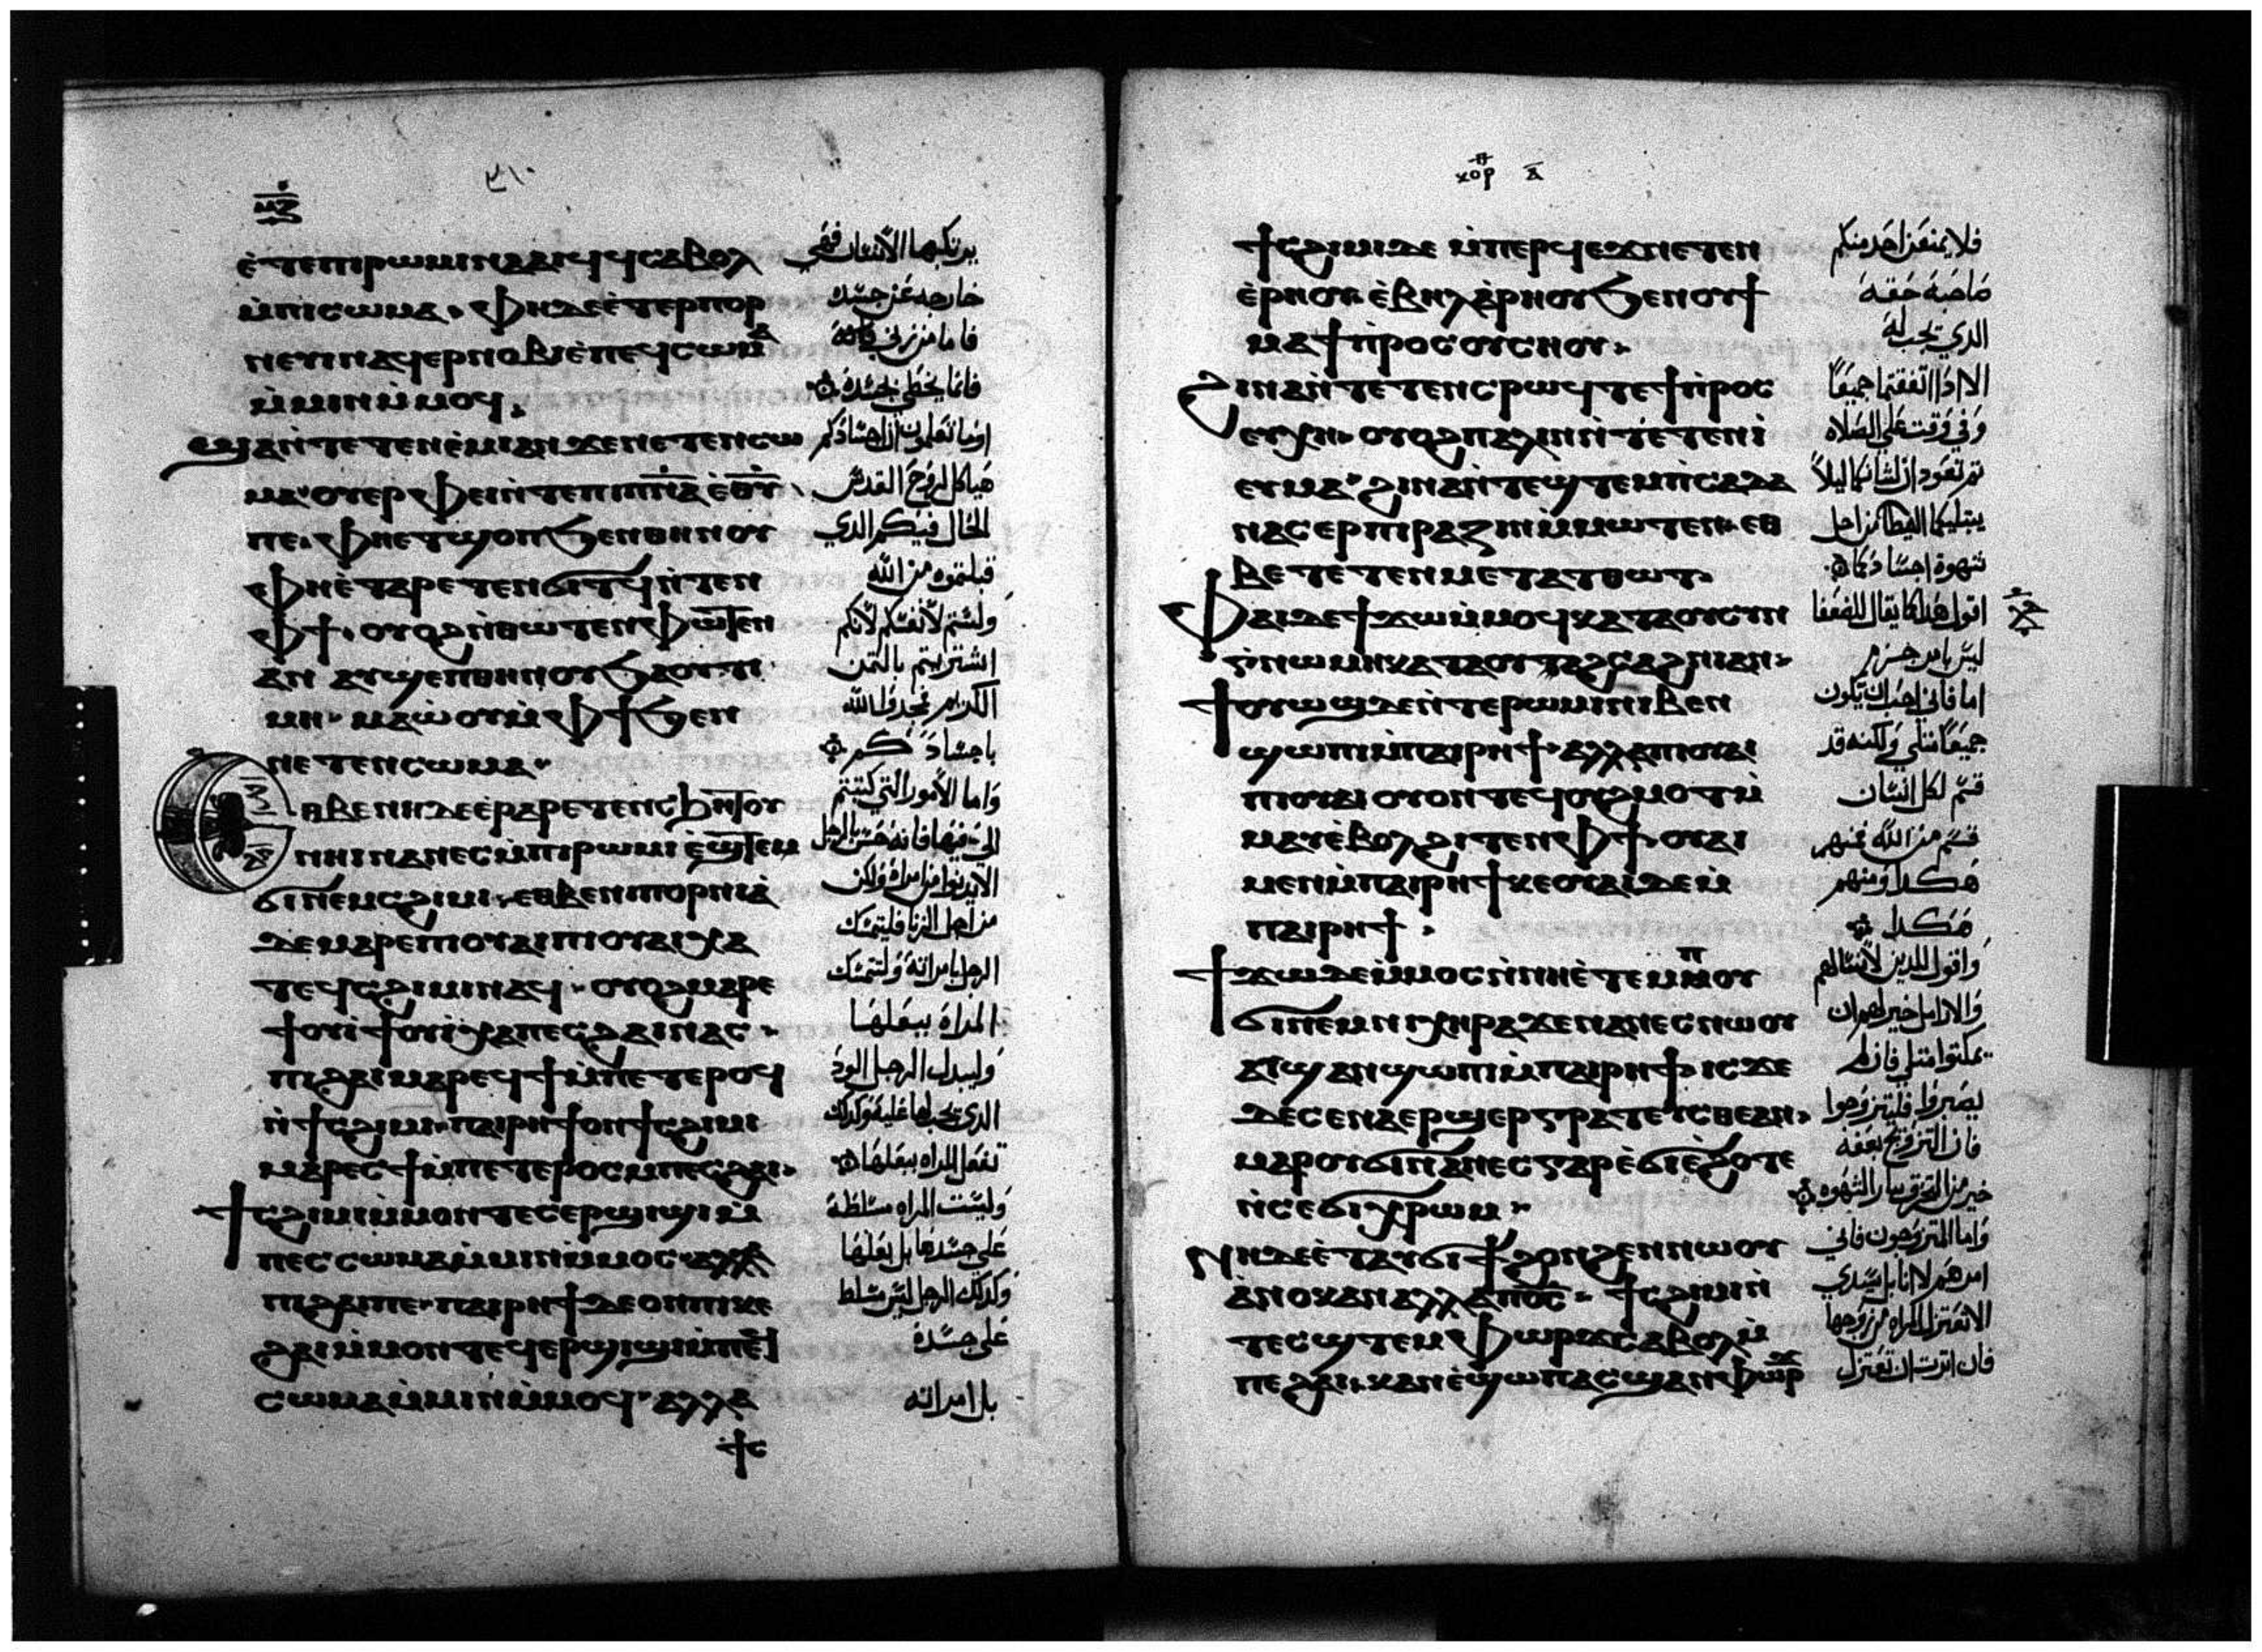 ⲙⲍ
٣١٠
ⲉ̀ⲧⲉⲡⲓⲣⲱⲙⲓⲛⲁⲁⲓϥϥⲥⲁⲃⲟⲗ
ⲙ̀ⲡⲓⲥⲱⲙⲁ. ⲫⲏⲇⲉⲉ̀ⲧⲉⲣⲡⲟⲣ
ⲛⲉⲩⲓⲛⲁϥⲉⲣⲛⲟⲃⲓⲉ̀ⲡⲉϥⲥⲱⲙⲁ
ⲙ̀ⲙⲓⲛⲙ̀ⲙⲟϥ.
ϣⲁⲛ̀ⲧⲉⲧⲉⲛⲉ̀ⲙⲓⲁⲛϫⲉⲛⲉⲧⲉⲛⲥⲱ
ⲙⲁ ⲟⲩⲉⲣⲫⲉⲓⲛ̀ⲧⲉⲡⲓⲡⲛ̅ⲁ̅ ⲉ̅ⲑ̅ⲩ̅
ⲡⲉ. ⲫⲏⲉⲧϣⲟⲡϧⲉⲛⲑⲏⲛⲟⲩ
ⲫⲏⲉ̀ⲧⲁⲣⲉⲧⲉⲛϭⲓⲧϥⲛ̀ⲧⲉⲛ
ⲫϯ. ⲟⲩⲟϩⲛ̀ⲑⲱⲧⲉⲛⲫⲱⲧⲉⲛ
ⲁⲛ ⲁⲩϣⲉⲡⲑⲏⲛⲟⲩϧⲁⲟⲩⲧⲓ
ⲙⲏ. ⲙⲁⲱ̀ⲟⲩⲙ̀ⲫϯϧⲉⲛ
ⲛⲉⲧⲉⲛⲥⲱⲙⲁ.
ⲉⲑⲃⲉⲛⲏⲇⲉⲉ̀ⲣⲁⲣⲉⲧⲉⲛⲥϧⲏⲧⲟⲩ
ⲛⲏⲓⲛⲁⲛⲉⲥⲙ̀ⲡⲓⲣⲱⲙⲓ ⲉ̀ϣⲧⲉⲙ
ϭⲓⲛⲉⲙⲥϩⲓⲙⲓ. ⲉⲑⲃⲉⲛⲓⲡⲟⲣⲛⲓⲁ̀
ⲇⲉⲙⲁⲣⲉⲡⲓⲟⲩⲁⲓⲡⲓⲟⲩⲁⲓⲭⲁ
ⲧⲉϥⲥϩⲓⲙⲓⲛⲁϥ. ⲟⲩⲟϩⲙⲁⲣⲉ
ϯⲟⲩⲓ̀ϯⲟⲩⲓ̀ⲭⲁⲡⲉⲥϩⲁⲓⲛⲁⲥ.
ⲡⲓϩⲁⲓⲙⲁⲣⲉϥϯⲙ̀ⲡⲉⲧⲉⲣⲟϥ
ⲛ̀ϯⲥϩⲓⲙⲓ. ⲡⲁⲓⲣⲏϯⲟⲛϯⲥϩⲓⲙⲓ
ⲙⲁⲣⲉⲥϯⲙ̀ⲡⲉⲧⲉⲣⲟⲥⲙⲡⲉⲥϩⲁⲓ.
ϯⲥϩⲓⲙⲓⲙ̀ⲙⲟⲛⲧⲉⲥⲉⲣϣⲓϣⲓⲙ̀
ⲡⲉⲥⲥⲱⲙⲁⲙ̀ⲙⲓⲛⲙ̀ⲙⲟⲥ ⲁⲗⲗⲁ
ⲡⲓϩⲁⲓⲡⲉ. ⲡⲁⲓⲣⲏϯⲇⲉⲟⲛⲡⲓⲕⲉ
ϩⲁⲓⲙ̀ⲙⲟⲛⲧⲉϥⲉⲣϣⲓϣⲓⲙ̀ⲡⲉϥ
ⲥⲱⲙⲁⲙ̀ⲙⲓⲛⲙ̀ⲙⲟϥ. ⲁⲗⲗⲁ
ϯⲥ
يرتكبها الانسان فهي
خارجه عن جسده
فاما من زنى فانه
فانما يخطي بجسده
اوما تعلمون ان اجسادكم
هياكل لروح القدس
الحال فيكم الذي
قبلتموه من الله
ولستم لانفسكم لانكم
اشتريتم بالثمن
الكريم فمجدوا الله
باجسادكم
واما الامور التي كتبتم
الي فيها فانه حسن بالرجل
الا يدنوا من امراه ولكن
من اجل الزنا فليتمسك
الرجل بامراته ولتتمسك
المراه ببعلها
وليبدل الرجل الود
الذي يجب لها عليه وكذلك
تفعل المراه ببعلها
وليست المراه مسلطة
على جسدها بل بعلها
وكذلك الرجل ليس مسلط
على جسده
بل امراته
ⲕⲟⲣ ⲁ̅
ϯⲥϩⲓⲙⲓⲇⲉ ⲙ̀ⲡⲉⲣϥⲉϫⲛⲉⲧⲉⲛ
ⲉ̀ⲣⲏⲟⲩ. ⲉ̀ⲃⲏⲗⲁ̀ⲣⲏⲟⲩϧⲉⲛⲟⲩϯ
ⲙⲁϯⲡ̀ⲣⲟⲥⲟⲩⲥⲏⲟⲩ.
ϩⲓⲛⲁⲛ̀ⲧⲉⲧⲉⲛⲥⲣⲱϥⲧⲉϯⲡ̀ⲣⲟⲥ
ⲉⲩⲭⲏ. ⲟⲩⲟϩⲡⲁⲗⲓⲛⲛ̀ⲧⲉⲧⲉⲛⲓ̀
ⲉⲩⲙⲁ ϩⲓⲛⲁⲛ̀ⲧⲉϣⲧⲉⲙⲡ̀ⲥⲁⲇⲁ
ⲛⲁⲥⲉⲣⲡⲓⲣⲁⲍⲓⲛⲙ̀ⲙⲱⲧⲉⲛ. ⲉⲑ
ⲃⲉⲧⲉⲧⲉⲛⲙⲉⲧⲁⲧⲑⲱⲧ.
ⲫⲁⲓⲇⲉϯϫⲱⲙ̀ⲙⲟϥⲕⲁⲧⲁⲟⲩⲥⲩ
ⲅ̀ⲛⲱⲙⲏⲕⲁⲧⲁⲟⲩⲧⲁϩⲥⲁϩⲛⲓⲁⲛ.
ϯⲟⲩⲱϣⲇⲉⲛ̀ⲧⲉⲣⲱⲙⲓⲛⲓⲃⲉⲛ
ϣⲱⲡⲓⲙ̀ⲡⲁⲓⲣⲏϯ. ⲁⲗⲗⲁⲡⲓⲟⲩⲁⲓ
ⲡⲓⲟⲩⲁⲓ ⲟⲩⲟⲛⲧⲉϥⲟⲩϩⲙⲟⲧⲙ̀
ⲙⲁⲩⲉ̀ⲃⲟⲗϩⲓⲧⲉⲛⲫϯ. ⲟⲩⲁⲓ
ⲙⲉⲛⲙ̀ⲡⲁⲓⲣⲏϯⲕⲉⲟⲩⲁⲓⲇⲉⲙ̀
ⲡⲁⲓⲣⲏϯ.
ϯϫⲱⲇⲉⲙ̀ⲙⲟⲥⲛ̀ⲛⲏⲉ̀ⲧⲉⲙⲡⲟⲩ
ϭⲓⲛⲉⲙⲛⲓⲭⲏⲣⲁϫⲉⲛⲁⲛⲉⲥⲛⲱⲟⲩ
ⲁⲩϣⲁⲛϣⲱⲡⲓⲙ̀ⲡⲁⲓⲣⲏϯ. ⲓⲥϫⲉ
ⲇⲉⲥⲉⲛⲁⲉⲣϣⲉⲣⲅⲣⲁⲧⲉⲩⲥⲑⲉⲁⲛ.
ⲙⲁⲣⲟⲩϭⲓⲛⲁⲛⲉⲥⲅⲁⲣⲉ̀ϭⲓⲉ̀ϩⲟⲧⲉ
ⲛ̀ⲥⲉϭⲓⲭⲣⲱⲙ.
ⲛⲏⲇⲉⲉ̀ⲧⲁⲩϭⲓ ϯϩⲟⲛϩⲉⲛⲛⲱⲟⲩ
ⲁ̀ⲛⲟⲕⲁⲛⲁⲗⲗⲁⲡⲟ̅ⲥ̅. ϯⲥϩⲓⲙⲓⲛ̀
ⲧⲉⲥϣⲧⲉⲙⲫⲱⲣϫⲥⲁⲃⲟⲗⲙ̀
ⲡⲉϩⲁⲓ. ⲕⲁⲛⲉ̀ϣⲱⲡⲁⲥϣⲁⲛⲫⲱⲣϫ
فلا يمنعن احد منكم
صاحبه حقه
الذي يجب له
الا اذا اتفقتما جميعاً
وفي وقت على الصلاه
ثم تعود ان لشانكما ليلاً
يبتليكما الشيطان من اجل
شهوة اجسادكما
اقول هذا كما يقال للضعفا
ليس بامر جزم
اما فاني احب ان يكون
جميعاً مثلي ولكنه قد
قسم لكل انسان
قسم من الله فمنهم
هكذا ومنهم
هكذا
واقول للذين لا نسا لهم
والارامل خير لهم ان
يمكثوا مثلي فان لم
يصبروا فليتزوجوا
فان التزويج بعفة
خير من التحرق بنار الشهوه
واما المتزوجون فاني
امرهم لا انا بل سيدي
الا تعتزل المراه من زوجها
فان اثرت ان تعتزل